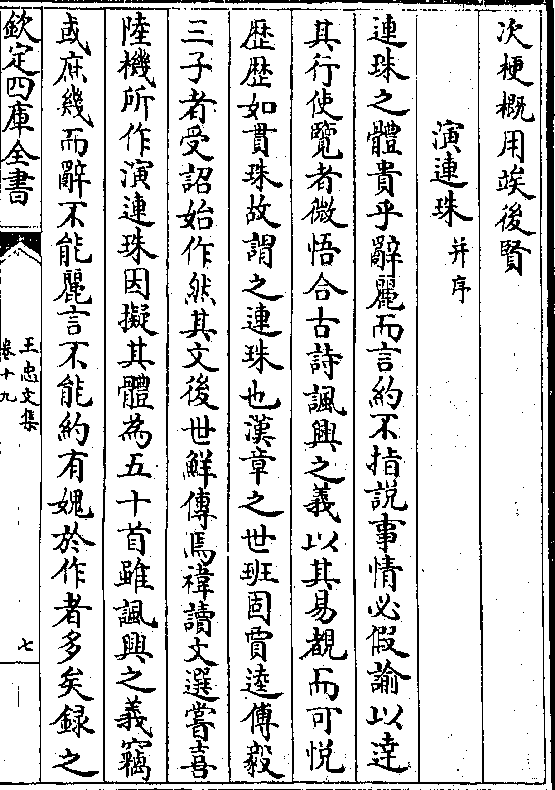 次梗概用竢後賢
演連珠并序
連珠之體貴乎辭麗而言約不指說事情必假諭以達
其行使覽者微悟合古詩諷興之義以其易覩而可悅
歴歴如貫珠故謂之連珠也漢章之世班固賈逵傅毅
三子者受詔始作然其文後世鮮傳焉禕讀文選嘗喜
陸機所作演連珠因擬其體為五十首雖諷興之義竊
或庶幾而辭不能麗言不能約有媿於作者多矣録之
欽定四庫全書
王忠文集
卷十九
七